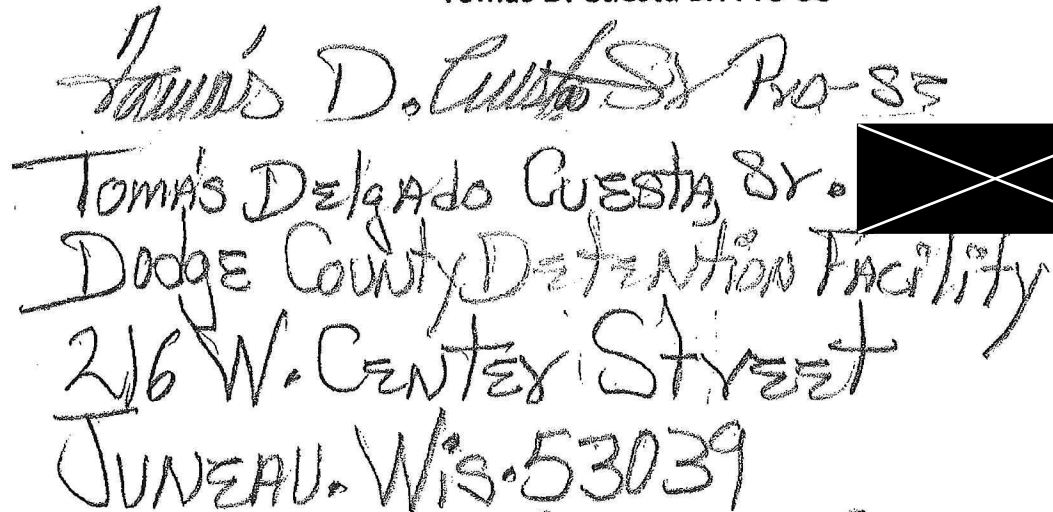 Tomás D. Cuesta Sr Pro-SE
Tomás DElgAdo CUESTA, Sr.
DodgE CouNty DETENtioN FAcility
216 W. CENtEr StrEEt
JUNEAU. Wis. 53039